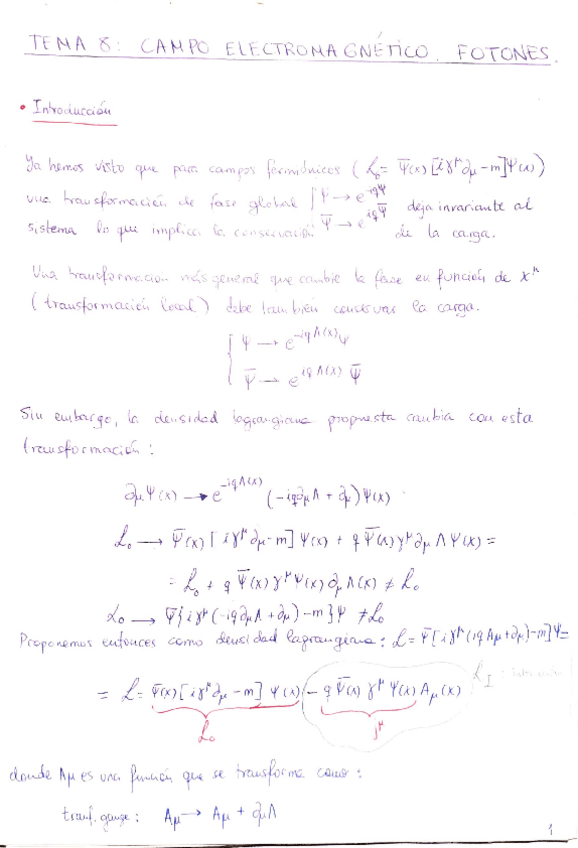 TEMA 8: CAMPO ELECTROMAGNÉTICO. FOTONES.
• Introducción
Ya hemos visto que para campos fermiónicos (ℒ₀ = Ψ̄(x)[iγ^μ∂_μ - m]Ψ(x))
una transformación de fase global { Ψ → e^{-iq}Ψ
Ψ̄ → e^{iq}Ψ̄ deja invariante al
sistema lo que implica la conservación de la carga.
Una transformación más general que cambie la fase en función de x^μ
(transformación local) debe también conservar la carga.
{ Ψ → e^{-iqΛ(x)}Ψ
Ψ̄ → e^{iqΛ(x)} Ψ̄
Sin embargo, la densidad lagrangiana propuesta cambia con esta
transformación:
∂_μΨ(x) → e^{-iqΛ(x)} (-iq∂_μΛ + ∂_μ)Ψ(x)
ℒ₀ → Ψ̄(x)[iγ^μ∂_μ - m]Ψ(x) + qΨ̄(x)γ^μ∂_μΛΨ(x) =
= ℒ₀ + qΨ̄(x)γ^μΨ(x)∂_μΛ(x) ≠ ℒ₀
ℒ₀ → Ψ̄{iγ^μ(-iq∂_μΛ + ∂_μ) - m}Ψ ≠ ℒ₀
Proponemos entonces como densidad lagrangiana: ℒ = Ψ̄[iγ^μ(iqA_μ + ∂_μ) - m]Ψ =
= ℒ = Ψ̄(x)[iγ^μ∂_μ - m]Ψ(x) - qΨ̄(x)γ^μΨ(x)A_μ(x) ℒ_I:
ℒ₀ j^μ
donde A_μ es una función que se transforma como:
tranf. gauge: A_μ → A_μ + ∂_μΛ
1